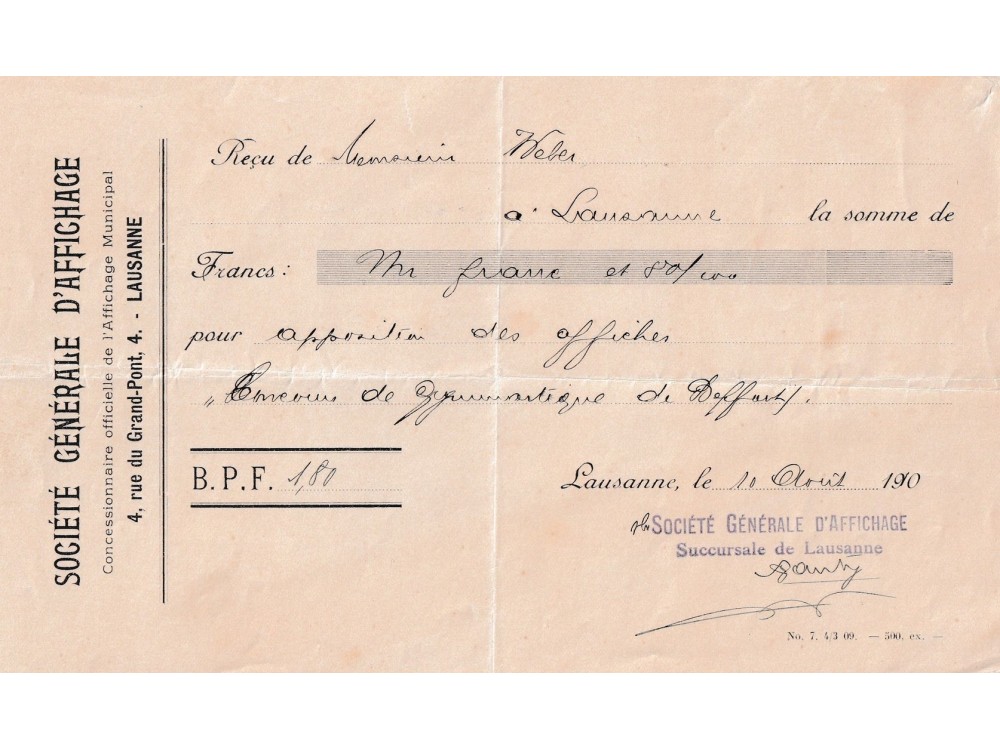 SOCIÉTÉ GÉNÉRALE D'AFFICHAGE
Concessionnaire officielle de l'Affichage Municipal
4, rue du Grand-Pont, 4. - LAUSANNE
Reçu de Monsieur Weber
a Lausanne la somme de
Francs: Un franc et 80/100
pour apposition des affiches
„ Concours de gymnastique de
B. P. F. 1,80
Lausanne, le 10 Août 1910
SOCIÉTÉ GÉNÉRALE D'AFFICHAGE
Succursale de Lausanne
No. 7. 4/3 09. — 500. ex. —